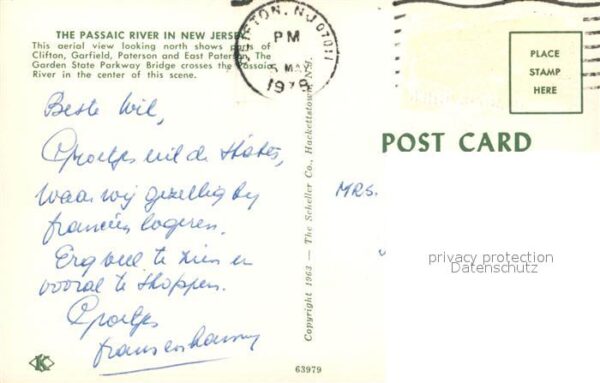 THE PASSAIC RIVER IN NEW JERSEY
This aerial view looking north shows parts of
Clifton, Garfield, Paterson and East Paterson. The
Garden State Parkway Bridge crosses the Passaic
River in the center of this scene.
CLIFTON, NJ 07011
PM
5 MAY
1978
PLACE
STAMP
HERE
Beste Wil,
Groetjes uit de States,
waar wij gezellig by
francien logeren.
Erg veel te zien en
vooral te shoppen.
Groetjes
POST CARD
MRS.
privacy protection
Datenschutz
Copyright 1963 — The Scheller Co., Hackettstown, N.J.
K
63979